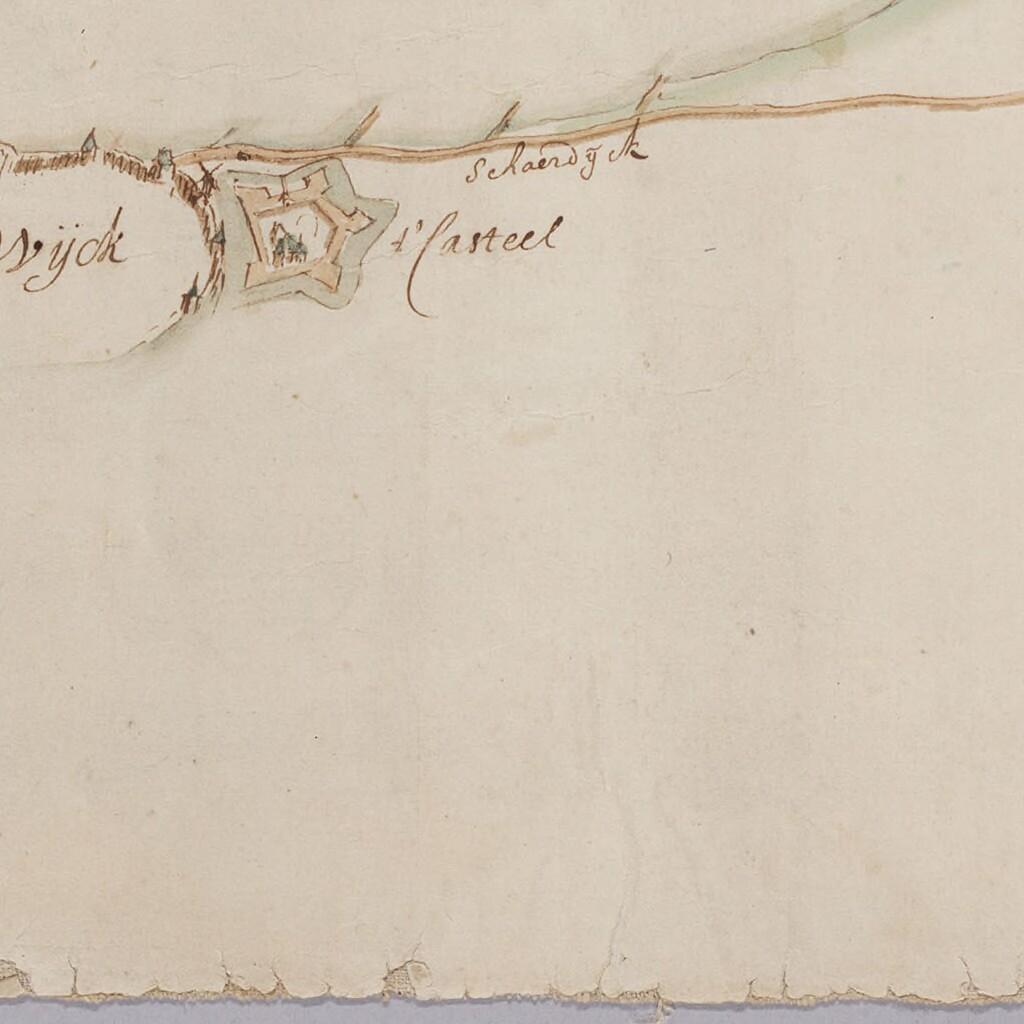 schaerdÿck
Wÿck
t'Casteel